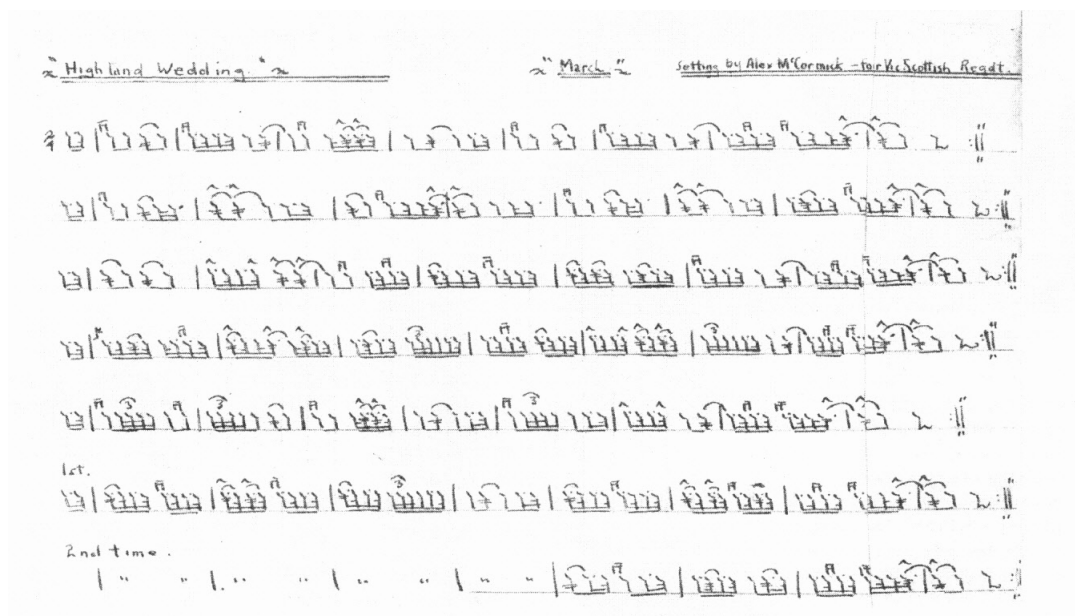 "Highland Wedding" "March" Setting by Alex McCormick - for Vic Scottish Regdt.
3
3 3
3
1st.
3
2nd time.
" " " " " " " "